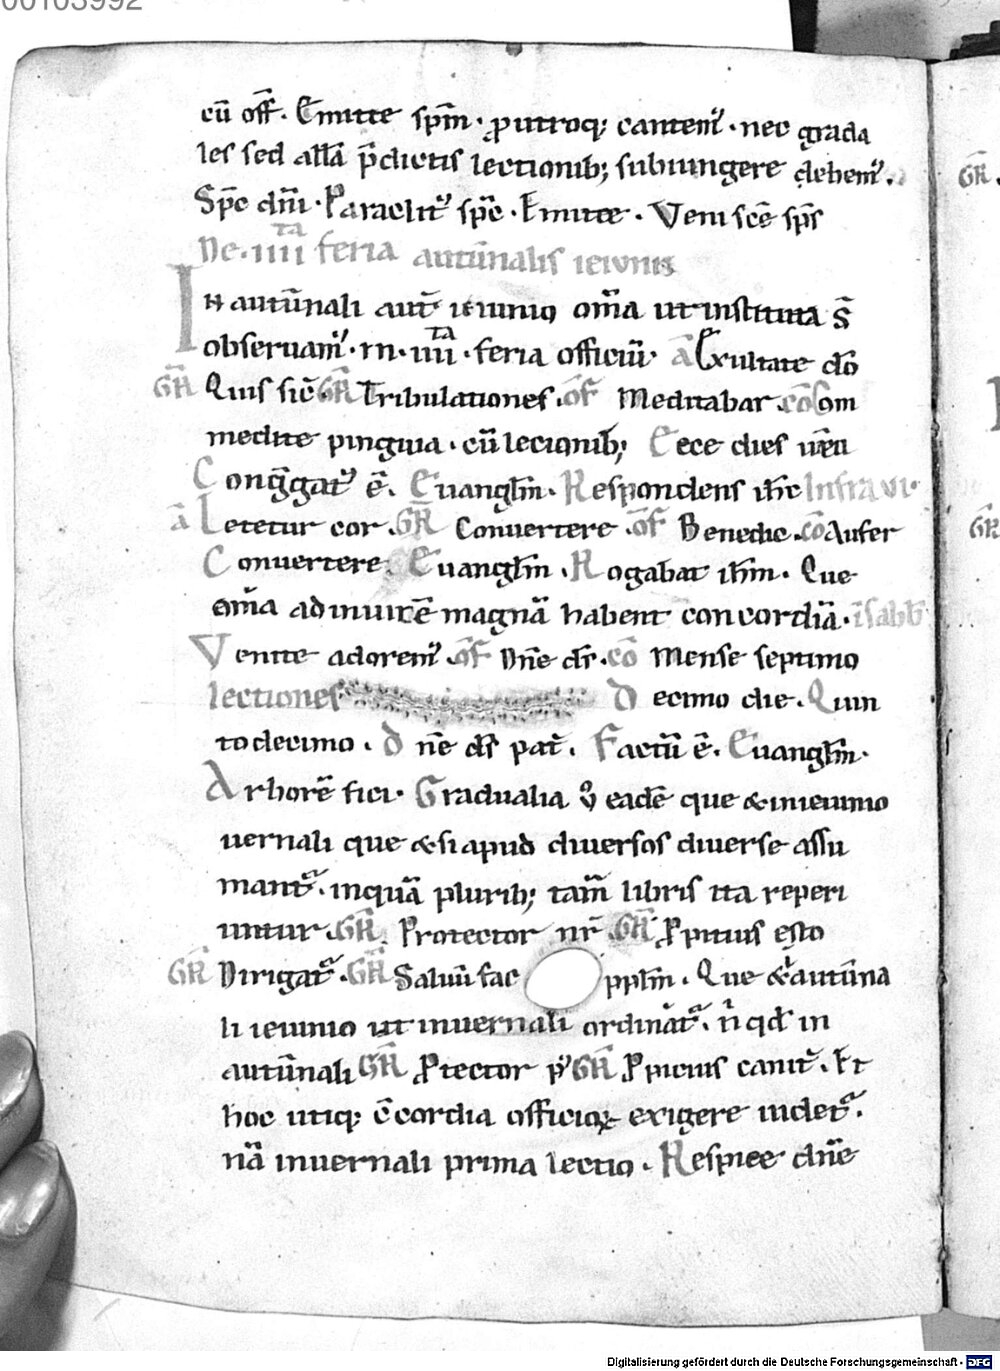 00103992
cū off̄. Emitte sp̄m. p̱utroq; cantem᾽. nec grada
les sed all̄a p̄dictis lectionib; subiungere debem᾽.
Sp̄c dn̄i. Paraclit᾽ sp̄c. Emitte. Veni sc̄e sp̄s
De .iiii.ta feria autūnalis ieiuniis
In autūnali aut̄ ieiunio om̄a ut instituta s̄
obseruam᾽. In .iiii.ta feria officiū. ā Exultate dō
GR̄ Quis sic̄ GR̄ Tribulationes. of̄ Meditabar. cō Com
medite pinguia. cū lecionib; Ecce dies uen̄
Cong̅gat᾽ ē. Euanglm̄. Respondens ih̄c Infra .vi.
ā Letetur cor. GR̄ Conuertere. of̄ Benedic. cō Aufer
Conuertere. Euanglm̄. Rogabat ih̄m. Que
om̄a adinuicē magnā habent concordiā. ī sabb̄
Venite adorem᾽ of̄ Dn̄e ds̄. cō Mense septimo
lectiones Decimo die. Quin
todecimo. Dn̄e ds̄ pat̄. Factū ē. Euanglm̄.
Arborē fici. Gradualia ů eadē que & inieiunio
uernali que & si apud diuersos diuerse assu
mant᾽. inquā plurib; tam̄ libris ita reperi
untur. GR̄ Protector nr̄ GR̄ P̱pitius esto
GR̄ Dirigat᾽. GR̄ Saluū fac pplm̄. Que & autūna
li ieiunio ut inuernali ordinat᾽. n̄ qd̄ in
autūnali GR̄ P̱tector p᾽ GR̄ P̱picius canit᾽. Et
hoc utiq; c̄cordia officioꝝ exigere uidet᾽.
nā inuernali prima lectio. Respice dn̄e
GR̄
GR̄
Digitalisierung gefördert durch die Deutsche Forschungsgemeinschaft - DFG